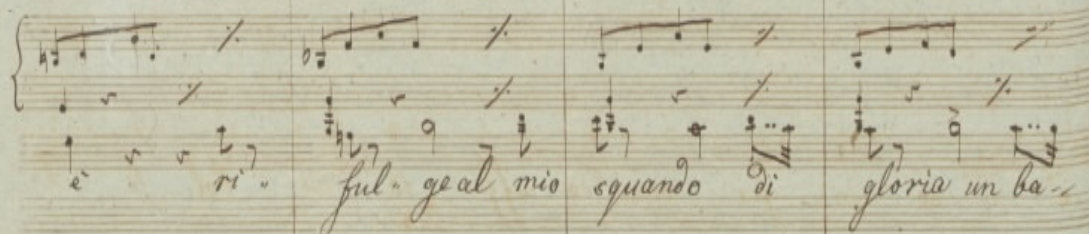 è ri " ful " ge al mio sguando di gloria un ba -